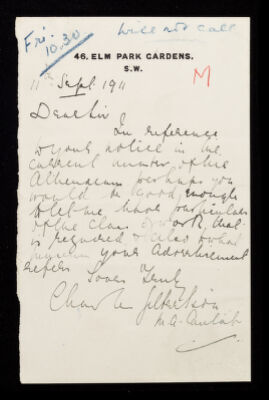 Fri.
10.30
will not call
46, ELM PARK GARDENS,
S.W.
M
11th Sept 1911
Dear Sir
In reference
to your notice in the
current number of the
Athenaeum perhaps you
would be good enough
to let me have particulars
of the class of work that
is required & also to what
museum your advertisement
refers
Yours Truly
Charles
M.A. Cantab